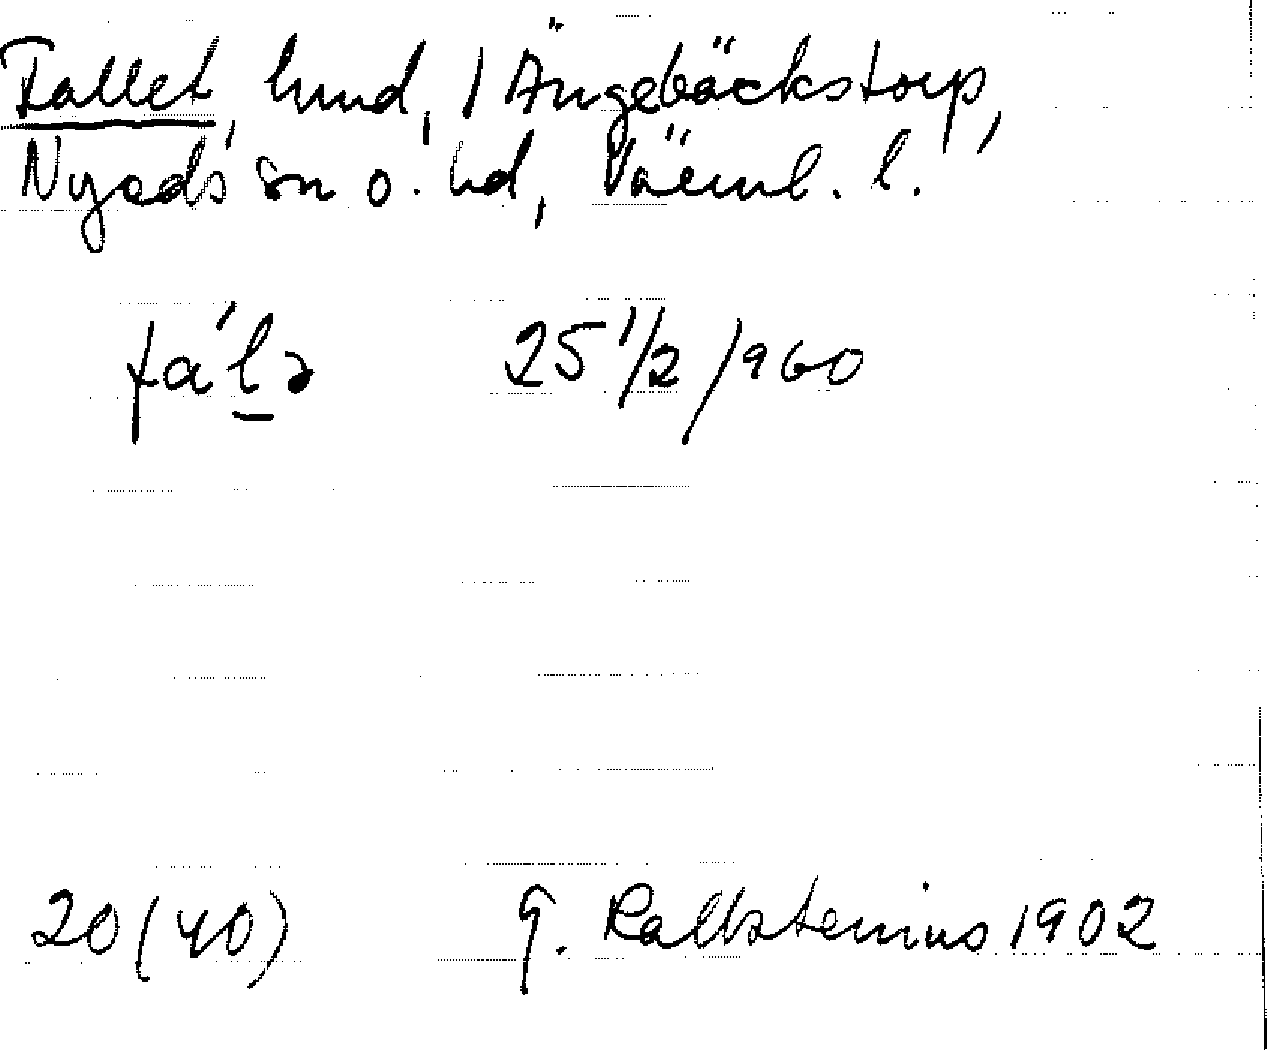 Fallet, hmd, / Ängebäckstorp,
Nyeds sn o. hd, Värml. l.
fa´lə 25 1/2 /960
20 (40) G. Kallstenius 1902